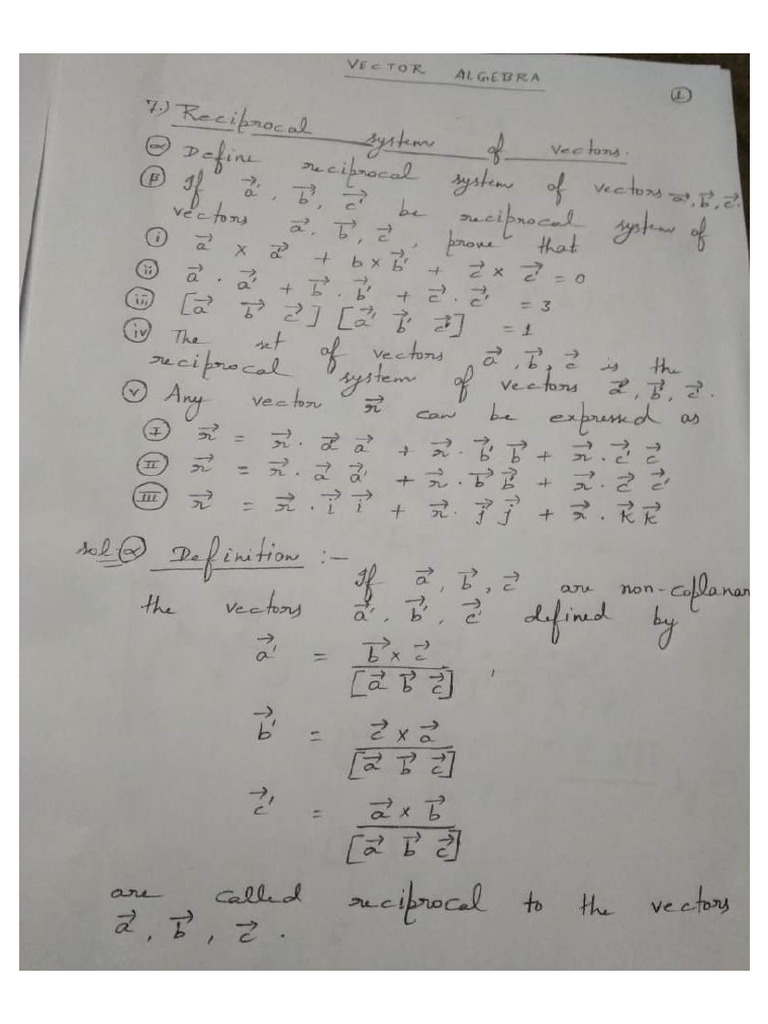 VECTOR ALGEBRA
1
7.) Reciprocal system of vectors.
α Define reciprocal system of vectors a⃗, b⃗, c⃗.
β If a⃗', b⃗', c⃗' be reciprocal system of
vectors a⃗, b⃗, c⃗, prove that
i a⃗ × a⃗' + b × b⃗' + c⃗ × c⃗' = 0
ii a⃗ . a⃗' + b⃗ . b⃗' + c⃗ . c⃗' = 3
iii [a⃗ b⃗ c⃗] [a⃗' b⃗' c⃗'] = 1
iv The set of vectors a⃗, b⃗, c⃗ is the
reciprocal system of vectors a⃗', b⃗', c⃗'.
v Any vector r⃗ can be expressed as
I r⃗ = r⃗ . a⃗' a⃗ + r⃗ . b⃗' b⃗ + r⃗ . c⃗' c⃗
II r⃗ = r⃗ . a⃗ a⃗' + r⃗ . b⃗ b⃗' + r⃗ . c⃗ c⃗'
III r⃗ = r⃗ . i⃗ i⃗ + r⃗ . j⃗ j⃗ + r⃗ . k⃗ k⃗
Sol. α Definition :-
If a⃗, b⃗, c⃗ are non-coplanar
the vectors a⃗', b⃗', c⃗' defined by
a⃗' = b⃗ × c⃗ / [a⃗ b⃗ c⃗] ,
b⃗' = c⃗ × a⃗ / [a⃗ b⃗ c⃗]
c⃗' = a⃗ × b⃗ / [a⃗ b⃗ c⃗]
are called reciprocal to the vectors
a⃗, b⃗, c⃗.